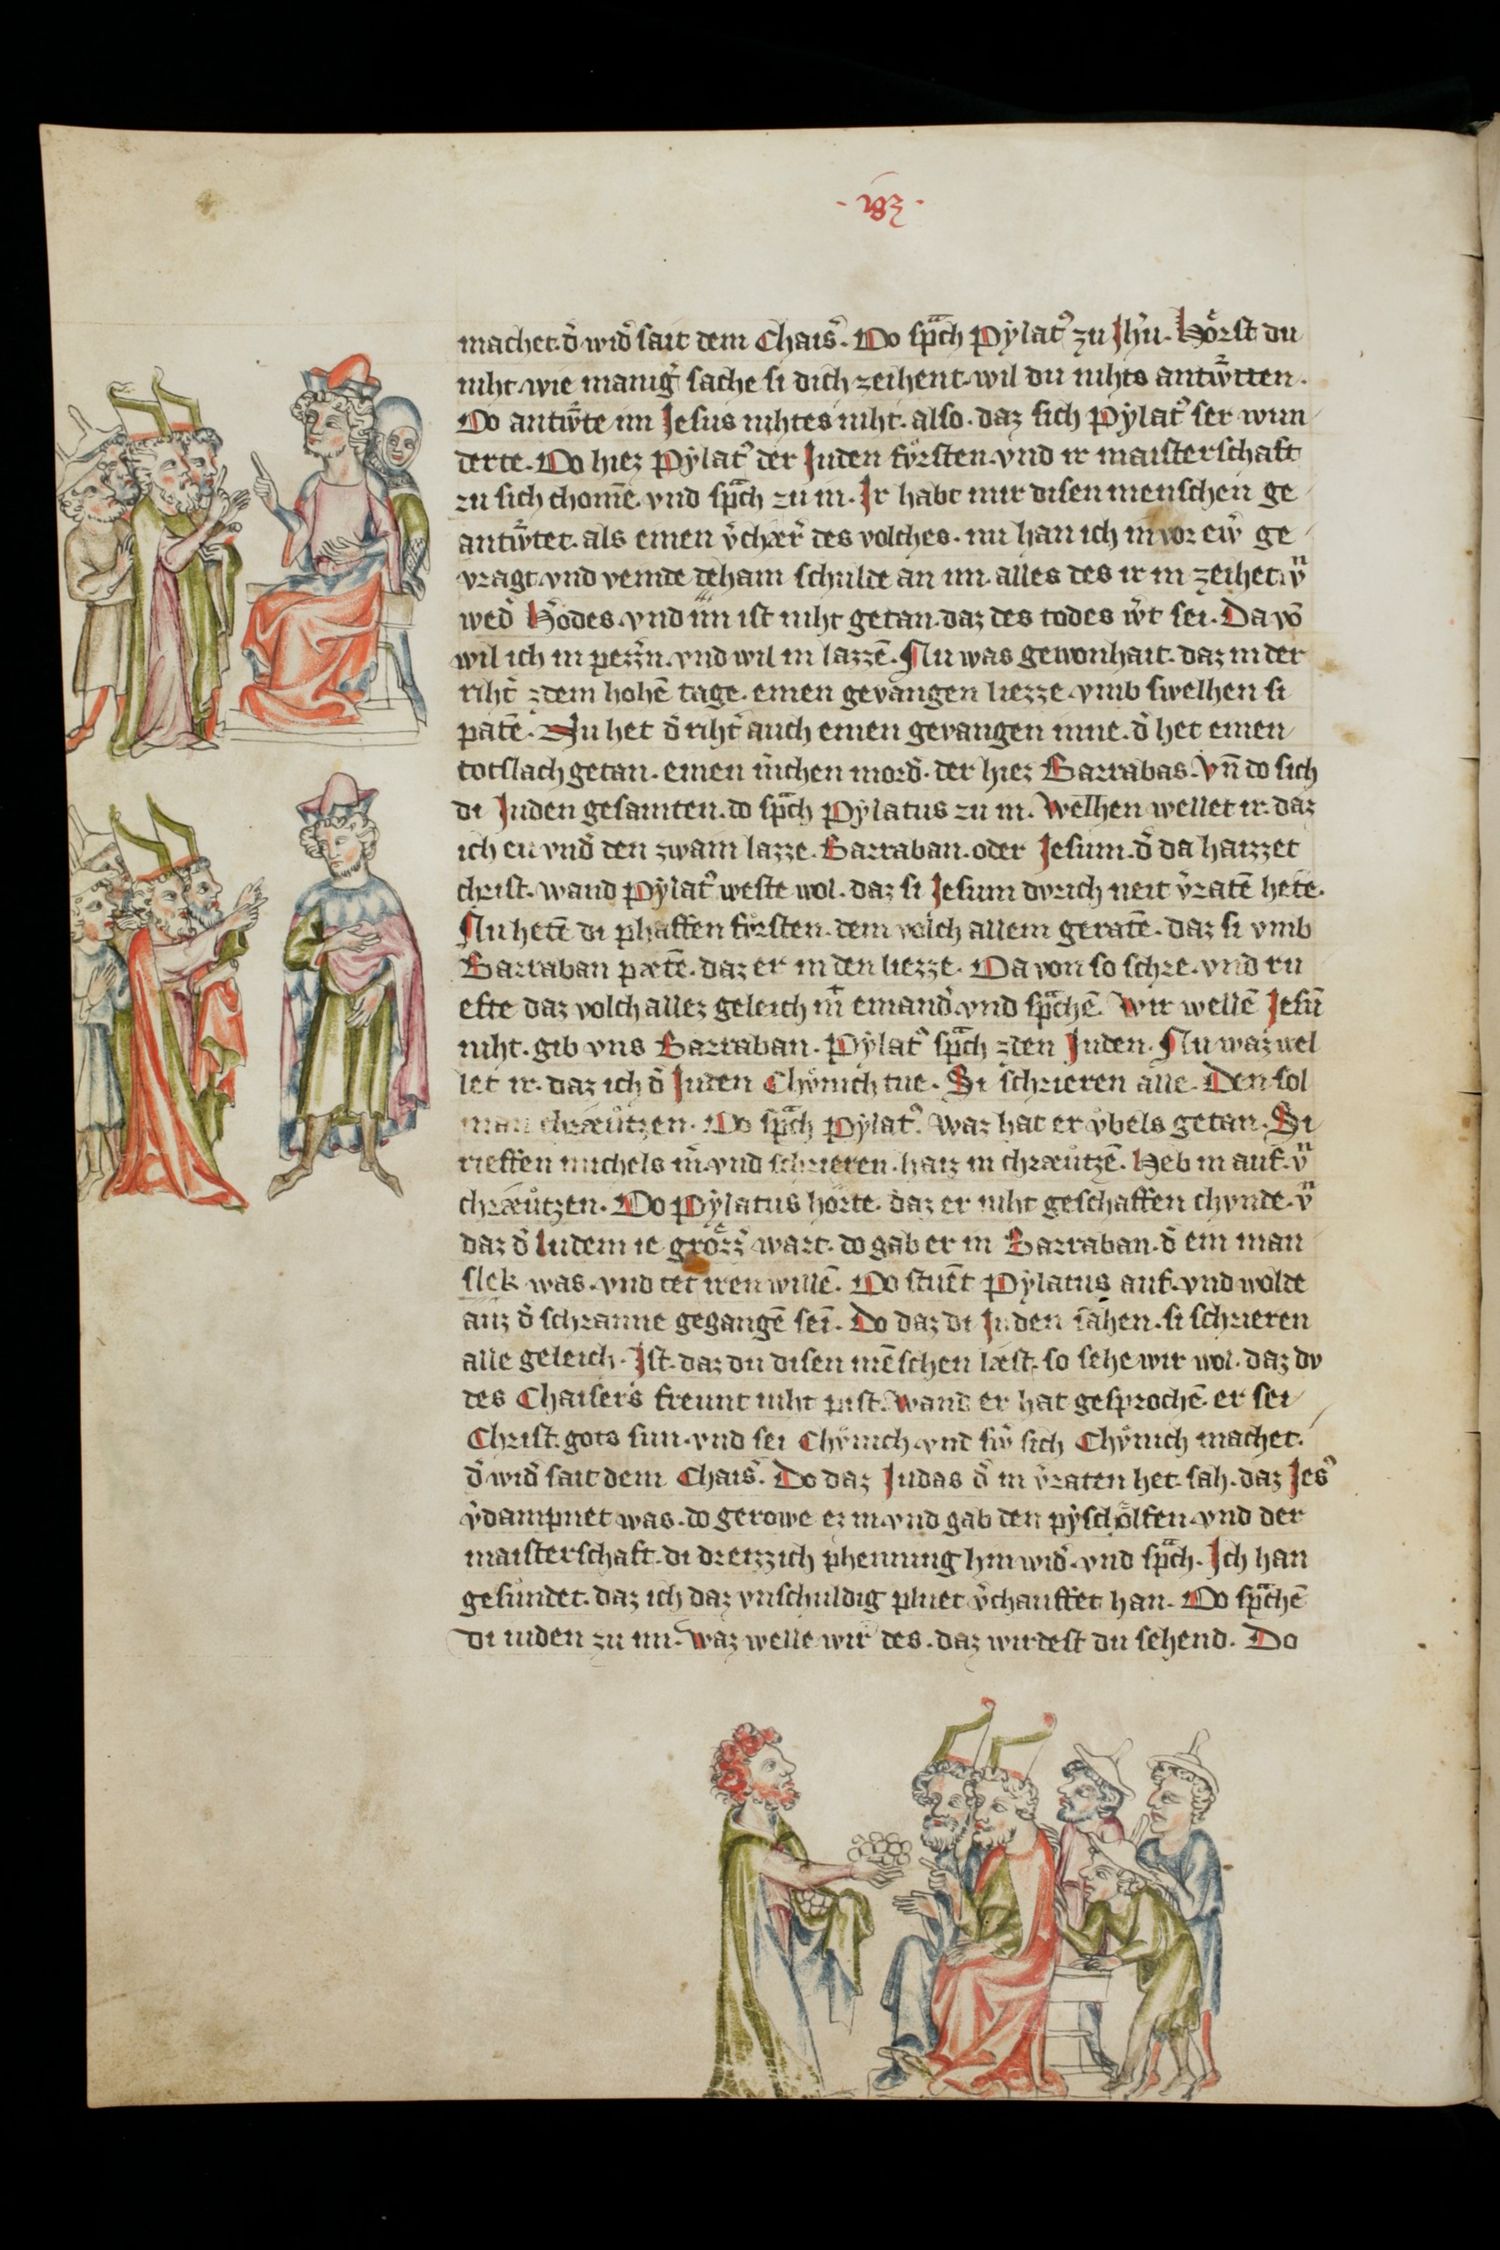 machet. d̾ wid̾ sait dem Chais̾. Do sp̃ch Pẏlat᾿ zu Jhũ. Hoͤrst du
niht. wie manig̾ sache si dich zeihent. wil du nihts antw̾tten.
Do antw̾te im Jesus nihtes niht. also. daz sich Pẏlat᾿ ser wun
derte. Do hiez Pẏlat᾿ der Juden fvͤrsten. vnd ir maisterschaft
zu sich chom̄e. vnd sp̃ch zu in. Ir habt mir disen menschen ge
antw̾tet. als einen v̾chær̾ des volches. nu han ich in vor ew̾ ge
vragt. vnd veinde dehain schulde an im. alles des ir in zeihet. vn̄
wed̾ H̾odes. vnd im ist niht getan. daz des todes w̾t sei. Da vō
wil ich in pezz̾n. vnd wil in lazzē. Nu was gewonhait. daz in der
riht̾ zdem hohē tage. einen gevangen liezze. vmb swelhen si
patē. Nu het d̾ riht̾ auch einen gevangen inne. d̾ het einen
totslach getan. einen m̾chen mord̾. der hiez Barrabas. Vn̄ do sich
di Juden gesamten. do sp̃ch Pẏlatus zu in. Welhen wellet ir. daz
ich eu vnd̾ den zwain lazze. Barraban. oder Jesum. d̾ da haizzet
christ. wand Pẏlat᾿ weste wol. daz si Jesum dvrich neit v̾ratē hete.
Nu hetē di phaffen fvͤrsten. dem volch allem geratē. daz si vmb
Barraban pætē. daz er in den liezze. Da von so schre. vnd ru
efte daz volch allez geleich m̄ einand̾. vnd sp̃chē. Wir wellē Jesū
niht. gib vns Barraban. Pẏlat᾿ sp̃ch zden Juden. Nu waz wel
let ir. daz ich d̾ Juden Chvͤnich tue. Si schrieren alle. Den sol
man chræuͤtzen. Do sp̃ch Pylat᾿. Waz hat er vͤbels getan. Si
rieffen michels m̾. vnd schrieren. haiz in chræuͤtzē. Heb in auf. vn̄
chræuͤtzen. Do Pẏlatus horte. daz er niht geschaffen chvnde. vn̄
daz d̾ ludem ie groͤzz̾ wart. do gab er in Barraban. d̾ ein man
slek was. vnd tet iren willē. Do stuēt Pẏlatus auf. vnd wolde
auz d̾ schranne gegangē sei. Do daz di Juden sahen. si schrieren
alle geleich. Ist. daz du disen mēschen læst. so sehe wir wol. daz dv
des Chaisers freunt niht pist. Wand er hat gesprochē. er sei
Christ. gots sun. vnd sei Chvͤnich. vnd sw̾ sich Chvͤnich machet.
d̾ wid̾ sait dem Chais̾. Do daz Judas d̾ in v̾raten het. sah. daz Jes᾿
v̾dampnet was. do gerowe ez in. vnd gab den pẏscholfen. vnd der
maisterschaft. di dreizzich phenning hin wid̾. vnd sp̃ch. Ich han
gesundet. daz ich daz vnschuldig pluet v̾chauffet han. Do sp̃chē
di iuden zu im. Waz welle wir des. daz wirdest du sehend. Do